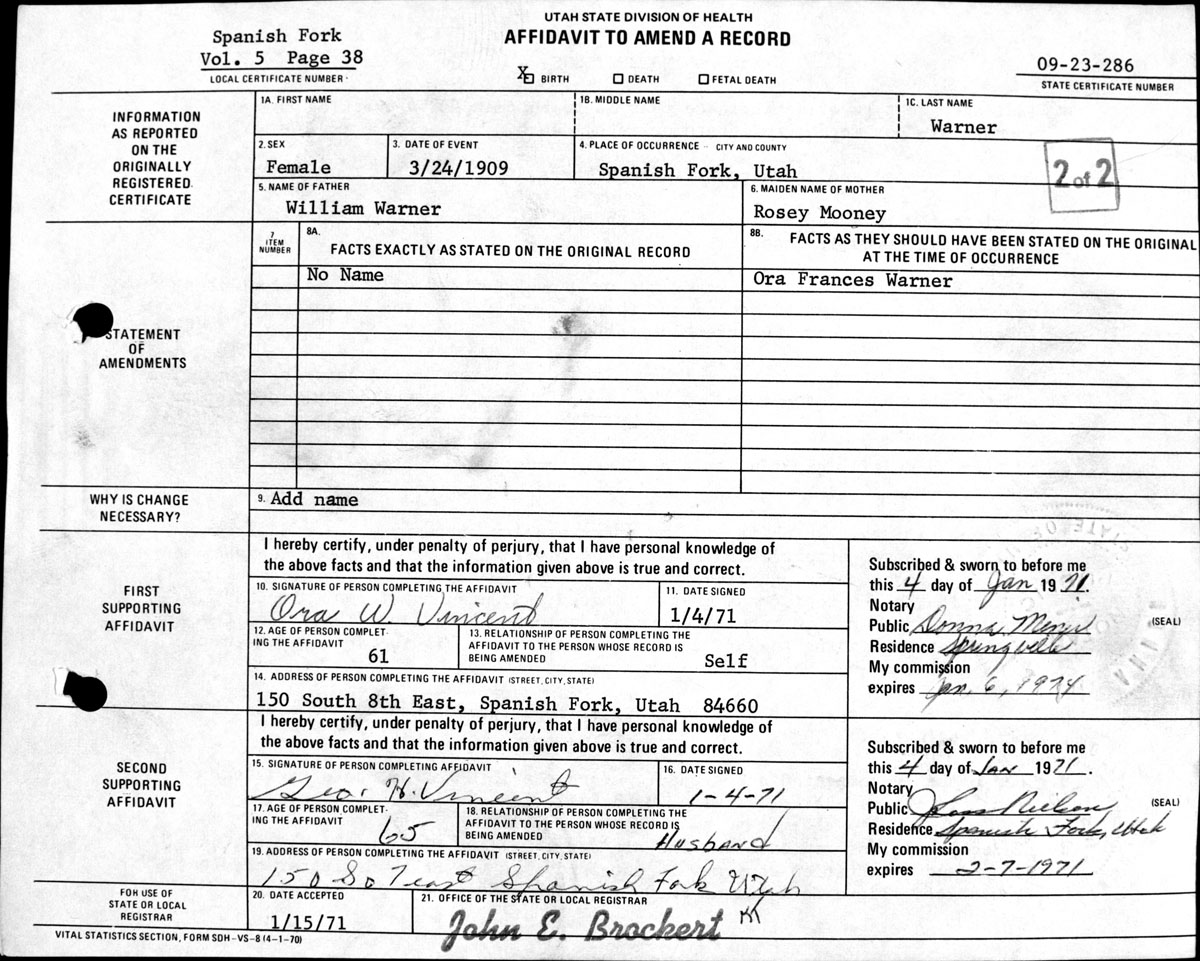 UTAH STATE DIVISION OF HEALTH
AFFIDAVIT TO AMEND A RECORD
Spanish Fork
Vol. 5 Page 38
LOCAL CERTIFICATE NUMBER
X BIRTH DEATH FETAL DEATH
09-23-286
STATE CERTIFICATE NUMBER
INFORMATION
AS REPORTED
ON THE
ORIGINALLY
REGISTERED
CERTIFICATE
1A. FIRST NAME
1B. MIDDLE NAME
1C. LAST NAME
Warner
2. SEX
Female
3. DATE OF EVENT
3/24/1909
4. PLACE OF OCCURRENCE - CITY AND COUNTY
Spanish Fork, Utah
2 of 2
5. NAME OF FATHER
William Warner
6. MAIDEN NAME OF MOTHER
Rosey Mooney
STATEMENT
OF
AMENDMENTS
7
ITEM
NUMBER
8A.
FACTS EXACTLY AS STATED ON THE ORIGINAL RECORD
8B.
FACTS AS THEY SHOULD HAVE BEEN STATED ON THE ORIGINAL
AT THE TIME OF OCCURRENCE
No Name
Ora Frances Warner
WHY IS CHANGE
NECESSARY?
9. Add name
FIRST
SUPPORTING
AFFIDAVIT
I hereby certify, under penalty of perjury, that I have personal knowledge of
the above facts and that the information given above is true and correct.
10. SIGNATURE OF PERSON COMPLETING THE AFFIDAVIT
Ora W. Vincent
11. DATE SIGNED
1/4/71
12. AGE OF PERSON COMPLET-
ING THE AFFIDAVIT
61
13. RELATIONSHIP OF PERSON COMPLETING THE
AFFIDAVIT TO THE PERSON WHOSE RECORD IS
BEING AMENDED
Self
14. ADDRESS OF PERSON COMPLETING THE AFFIDAVIT (STREET, CITY, STATE)
150 South 8th East, Spanish Fork, Utah 84660
Subscribed & sworn to before me
this 4 day of Jan 1971.
Notary
Public Donna
(SEAL)
Residence Springville
My commission
expires Jan. 6, 1974
STATE OF
SECOND
SUPPORTING
AFFIDAVIT
I hereby certify, under penalty of perjury, that I have personal knowledge of
the above facts and that the information given above is true and correct.
15. SIGNATURE OF PERSON COMPLETING AFFIDAVIT
Geo. H. Vincent
16. DATE SIGNED
1-4-71
17. AGE OF PERSON COMPLET-
ING THE AFFIDAVIT
65
18. RELATIONSHIP OF PERSON COMPLETING THE
AFFIDAVIT TO THE PERSON WHOSE RECORD IS
BEING AMENDED
Husband
19. ADDRESS OF PERSON COMPLETING THE AFFIDAVIT (STREET, CITY, STATE)
150 So 7 east Spanish Fork Utah
Subscribed & sworn to before me
this 4 day of Jan 1971.
Notary
Public Nielsen
(SEAL)
Residence Spanish Fork, Utah
My commission
expires 2-7-1971
FOR USE OF
STATE OR LOCAL
REGISTRAR
20. DATE ACCEPTED
1/15/71
21. OFFICE OF THE STATE OR LOCAL REGISTRAR
John E. Brockert
VITAL STATISTICS SECTION, FORM SDH-VS-8 (4-1-70)